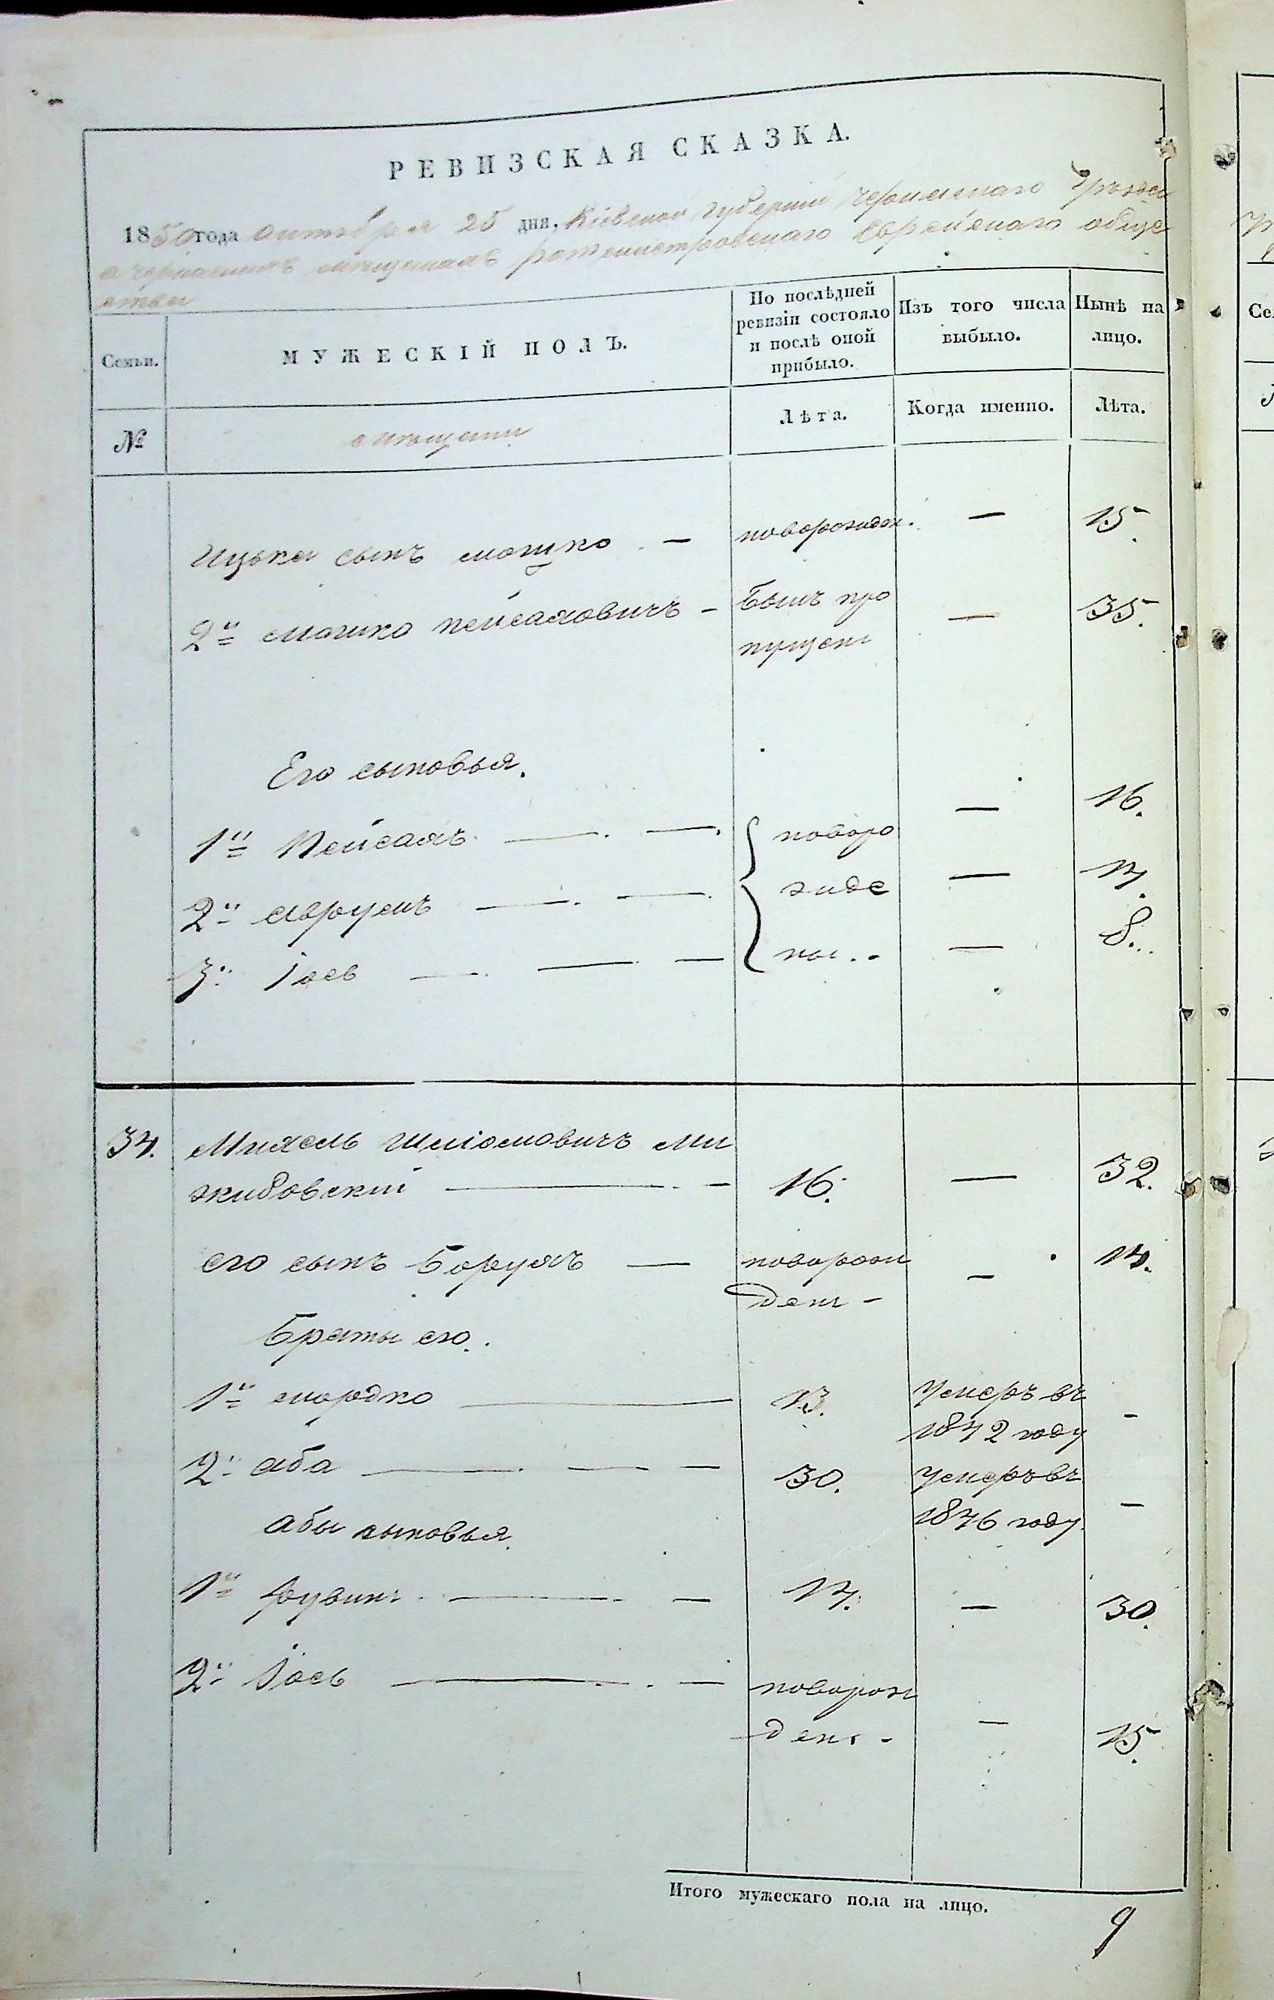 РЕВИЗСКАЯ СКАЗКА.
1850 года октября 25 дня, Кіевской губерніи
мещанахъ ротмистровскаго Еврейскаго обще
ства
Семьи.
МУЖЕСКІЙ ПОЛЪ.
По послѣдней ревизіи состояло и послѣ оной прибыло.
Изъ того числа выбыло.
Нынѣ на лицо.
№
мещане
Лѣта.
Когда именно.
Лѣта.
Ицька сынъ мошко — новорожден. — 15.
2й мошко пейсаховичъ — былъ про — 35.
пущенъ
Его сыновья.
1й Пейсахъ — новоро — 16.
2й аврумъ — жде — 14.
3й Іось — ны — 8.
34. Михель Шліомовичъ Ми
жибовскій — 16. — 32.
его сынъ Борухъ —новорож — 14.
денъ —
Браты его.
1й мордко — 13. умеръ въ —
1842 году
2й аба — 30. умеръ въ —
1846 году
абы сыновья
1й рувинъ — 14. — 30.
2й Іось — новорож
денъ — — 15.
Итого мужескаго пола на лицо.
9